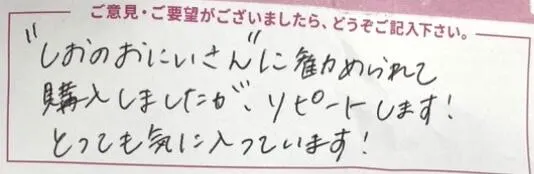 ご意見・ご要望がございましたら、どうぞご記入下さい。
"しおのおにいさん"に勧められて
購入しましたが、リピートします!
とっても気に入っています!